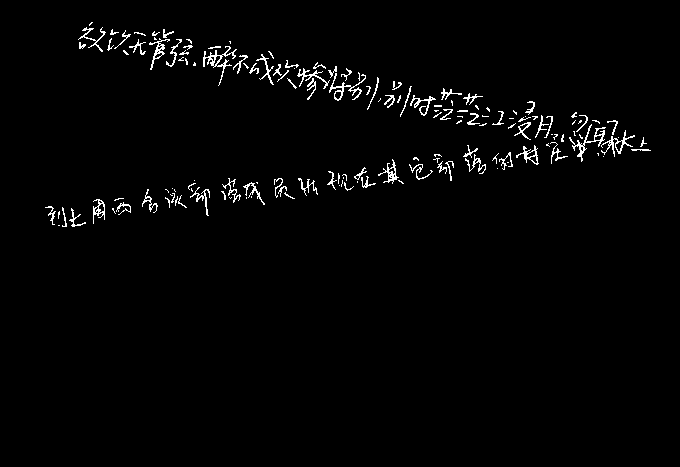 欲饮无管弦.醉不成欢惨将别.别时茫茫江浸月.忽闻水上
到上周两名该部落成员出现在其它部落的村庄里